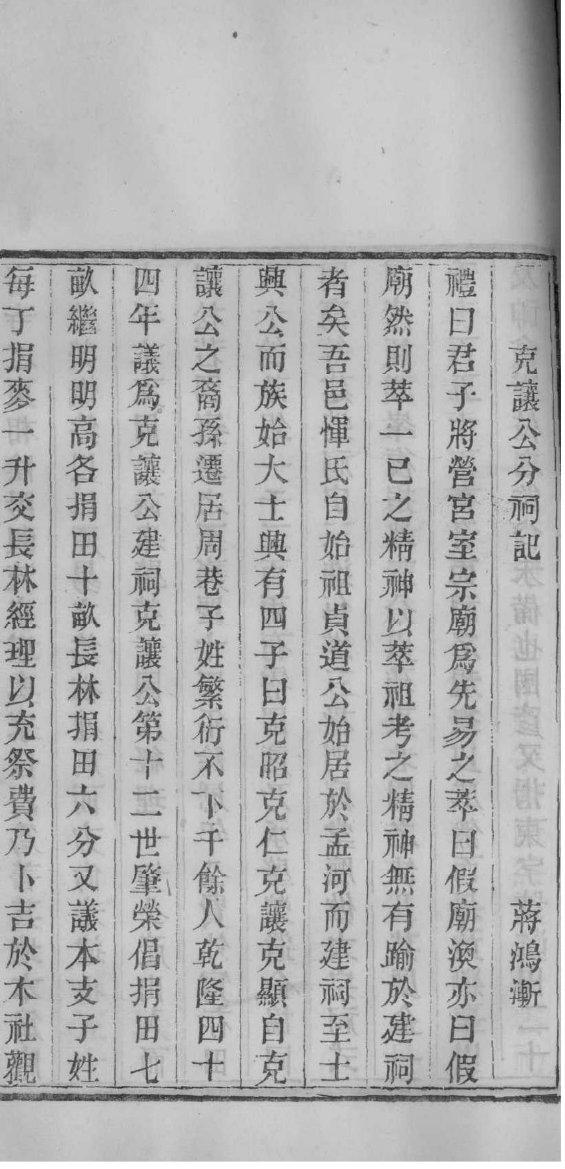 克讓公分祠記 蔣鴻漸
禮曰君子將營宮室宗廟爲先易之萃曰假廟渙亦曰假
廟然則萃一已之精神以萃祖考之精神無有踰於建祠
者矣吾邑惲氏自始祖貞道公始居於孟河而建祠至士
興公而族始大士興有四子曰克昭克仁克讓克顯自克
讓公之裔孫遷居周巷子姓繁衍不下千餘人乾隆四十
四年議爲克讓公建祠克讓公第十二世肇榮倡捐田七
畝繼明明高各捐田十畝長林捐田六分又議本支子姓
每丁捐麥一升交長林經理以充祭費乃卜吉於本社觀